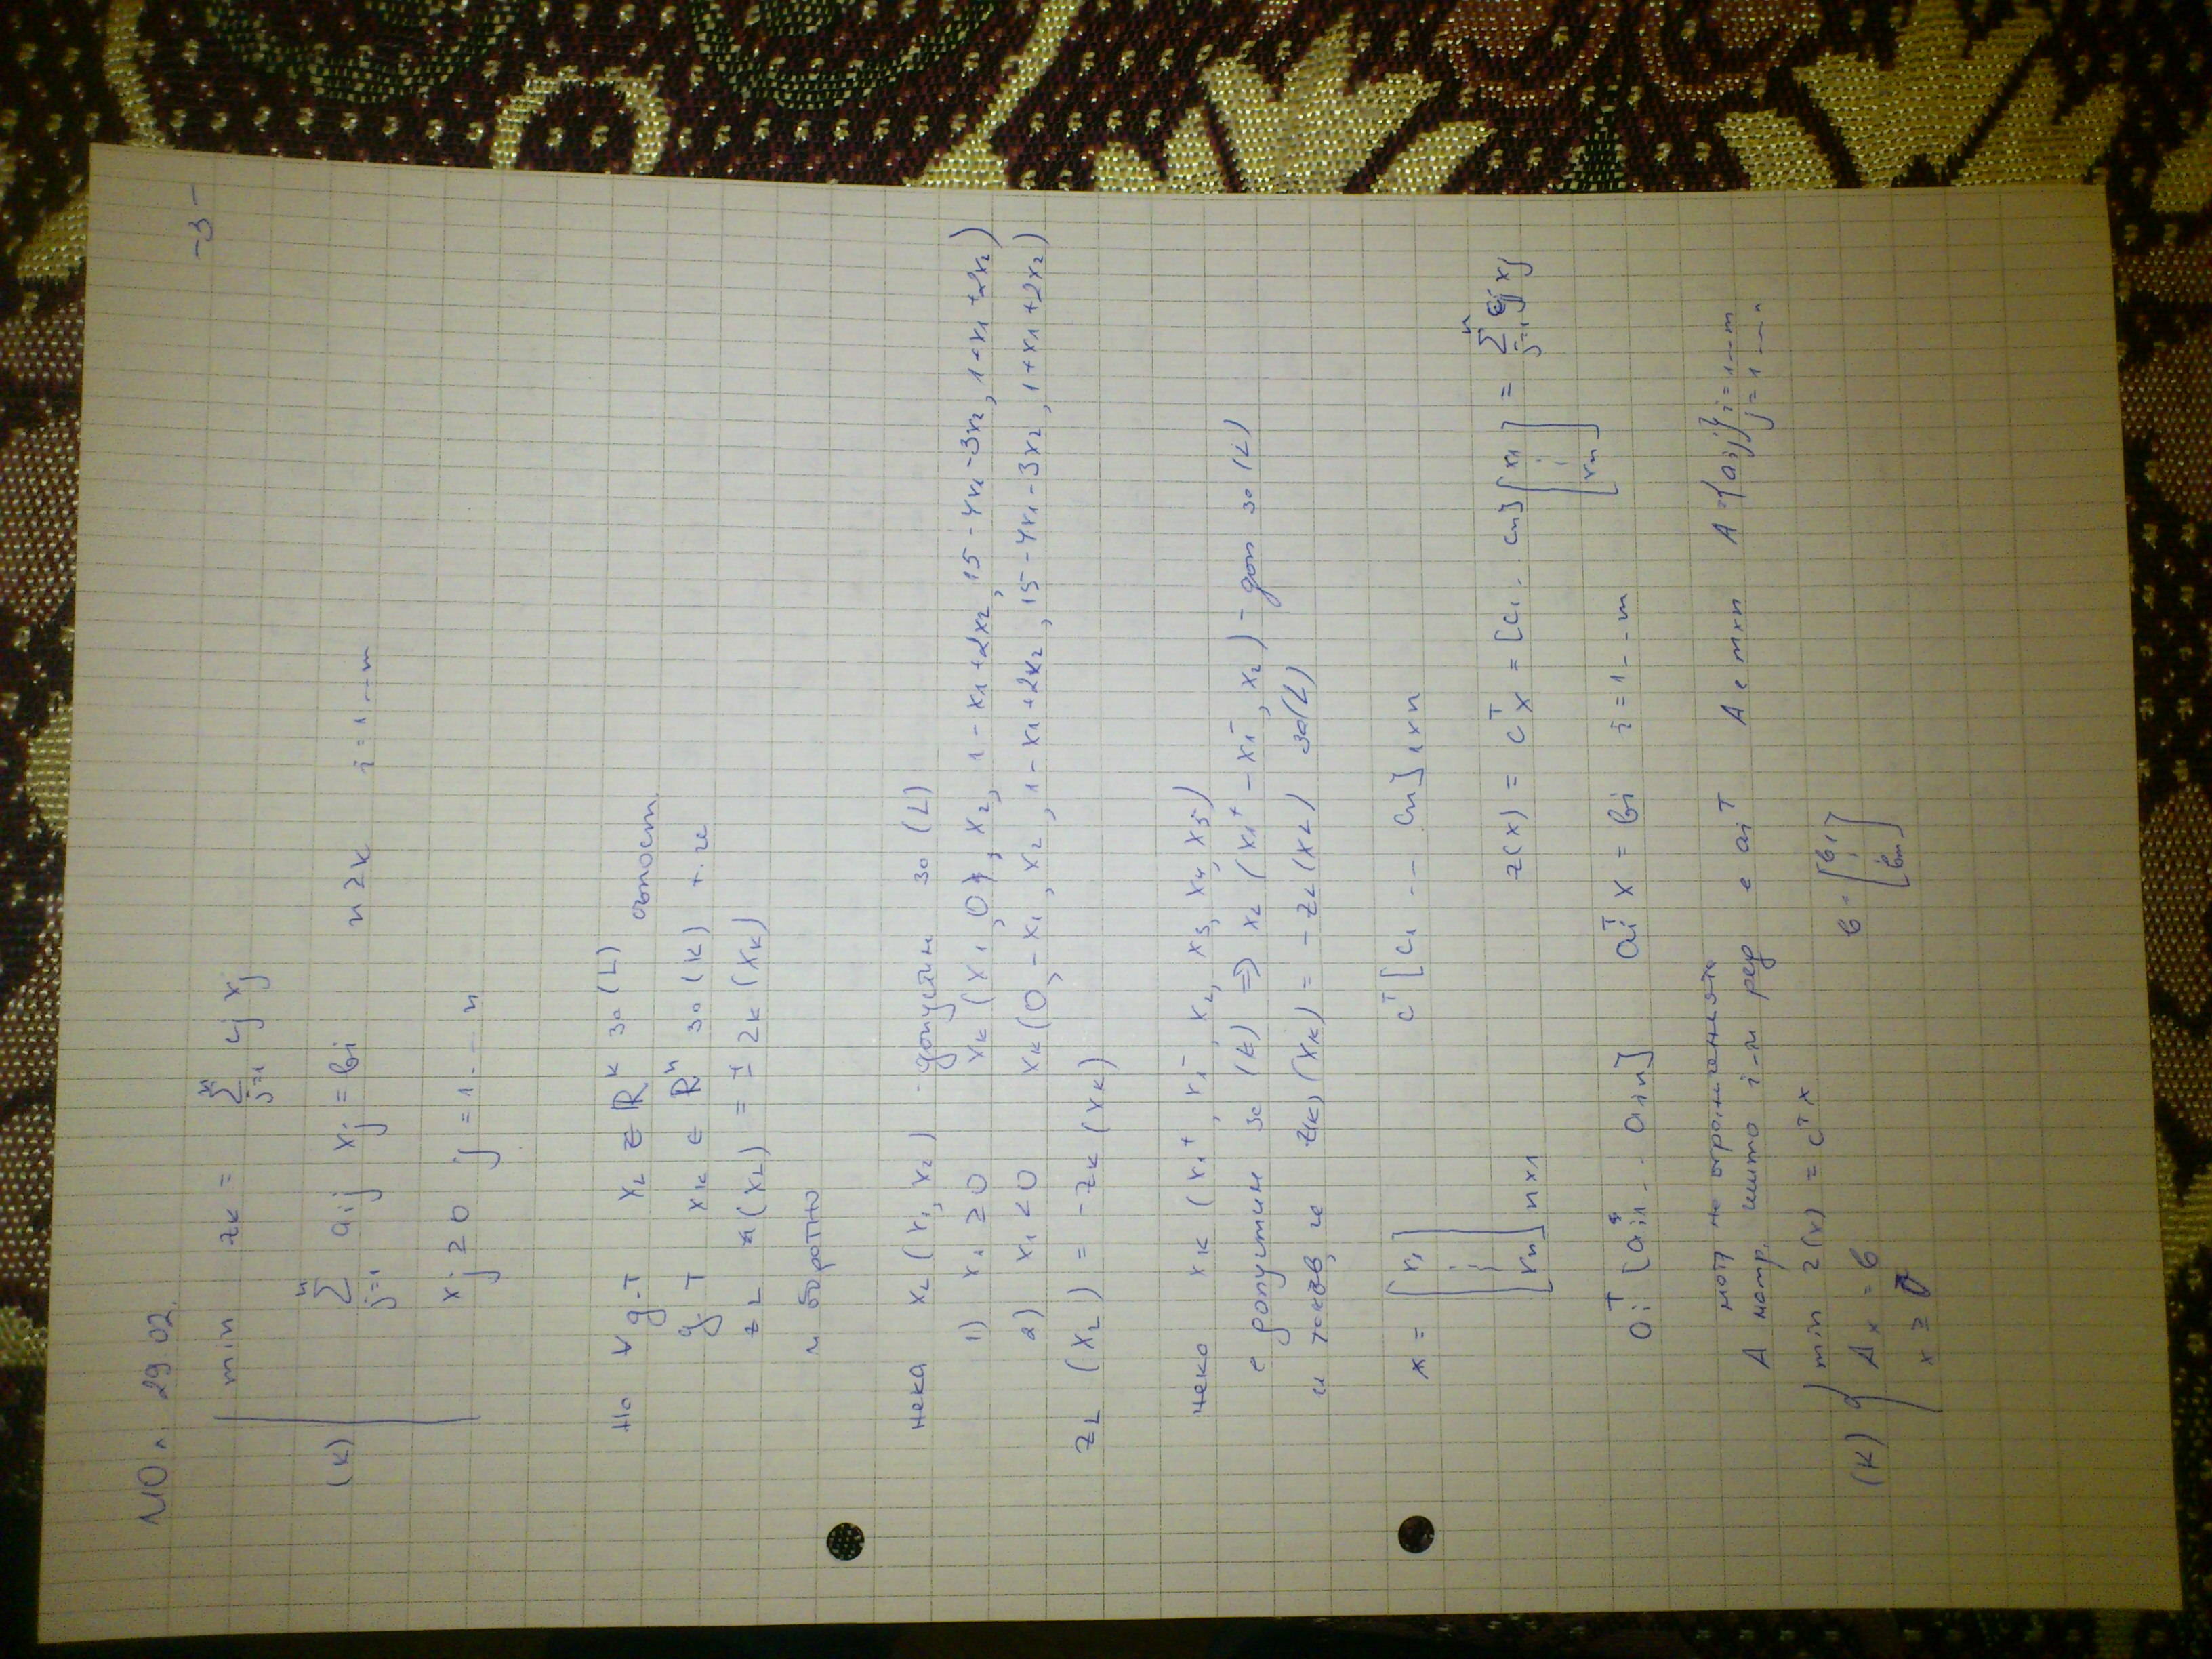 МО л. 29.02. -3-
min zк = ∑ⁿj=1 cj xj
(К) ∑ⁿj=1 aij xj = bi n≥k i=1...m
xj ≥ 0 j=1...n
На ∀ g-T xL ∈ Rᵏ за (L) съпост.
g-T xк ∈ Rⁿ за (К) т.че
zL (xL) = ± zк (xк)
и обратно
нека xL (x1, x2) - допустим за (L)
1) x1 ≥ 0 xк (x1, 0, x2, 1-x1+2x2, 15-4x1-3x2, 1+x1+2x2)
2) x1 < 0 xк (0, -x1, x2, 1-x1+2x2, 15-4x1-3x2, 1+x1+2x2)
zL (xL) = -zк (xк)
нека xк (x1⁺, x1⁻, x2, x3, x4, x5)
е допустим за (К) ⇒ xL (x1⁺ - x1⁻, x2) - доп за (L)
и такав, че z(к) (xк) = -zL (xL) за (L)
x = [x1 ⋮ xn] n×1 cᵀ [c1 ... cn] 1×n
z(x) = cᵀx = [c1. cn] [x1 ⋮ xn] = ∑ⁿj=1 cj xj
aiᵀ [ai1 .. ain] aiᵀ x = bi i=1...m
матр на ограниченията
A матр. чиито i-ти ред е aiᵀ A e m×n A={aij} i=1...m j=1...n
(К) { min z(x) = cᵀx
Ax = b b = [b1 ⋮ bm]
x ≥ 0